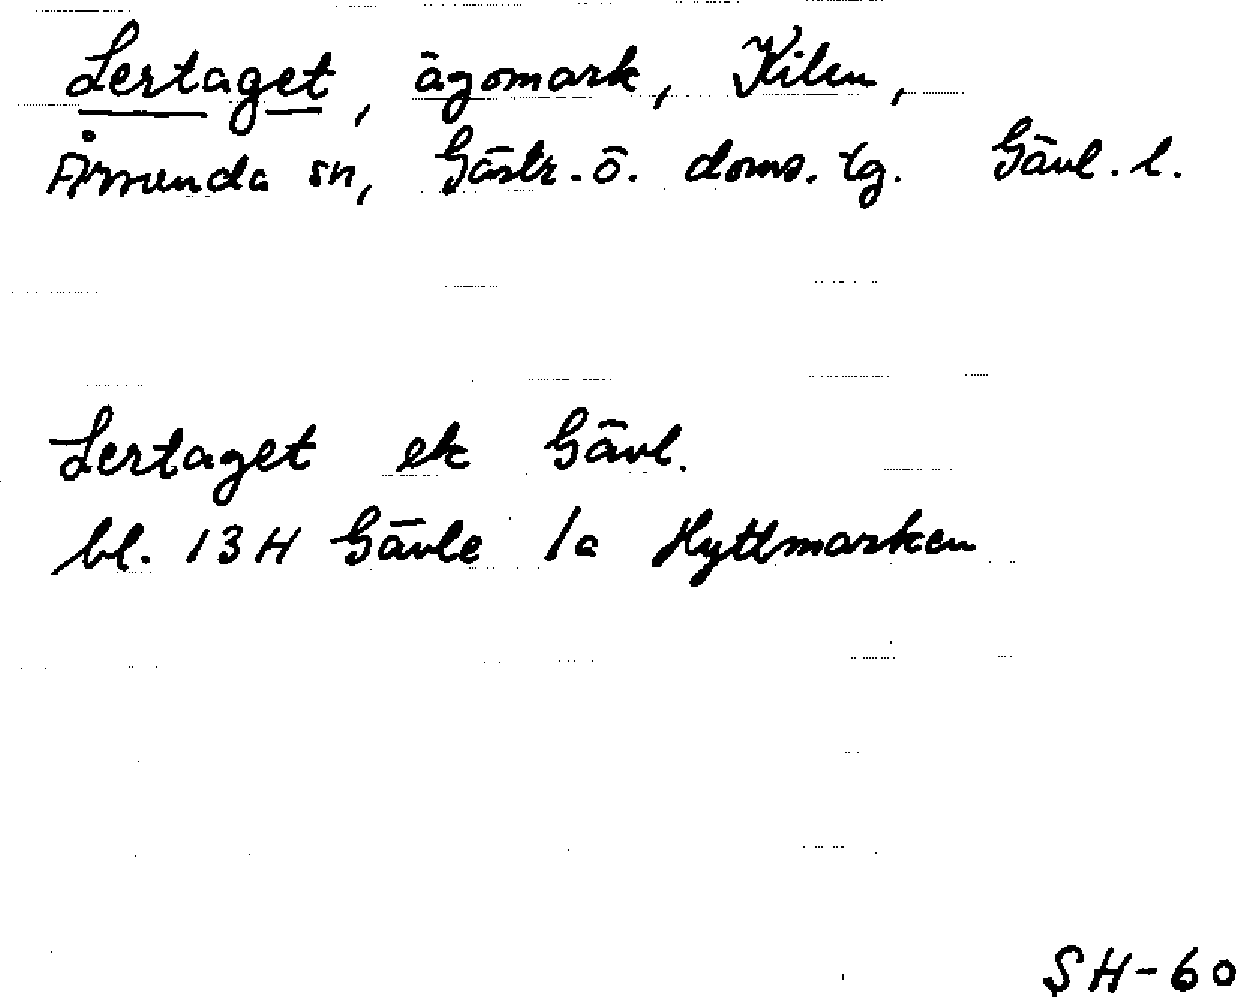 Lertaget, ägomark, Kilen,
Årsunda sn, Gästr. ö. doms. tg. Gävl. l.
Lertaget ek Gävl.
bl. 13H Gävle 1a Hyttmarken
SH-60